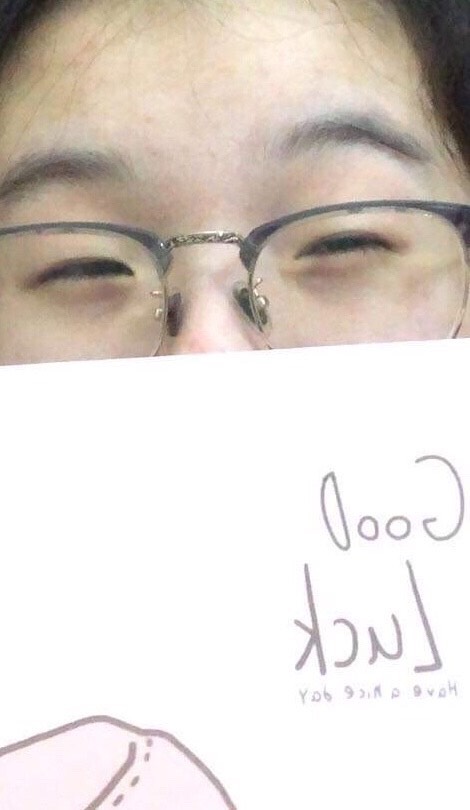 Good
Luck
Have a nice day